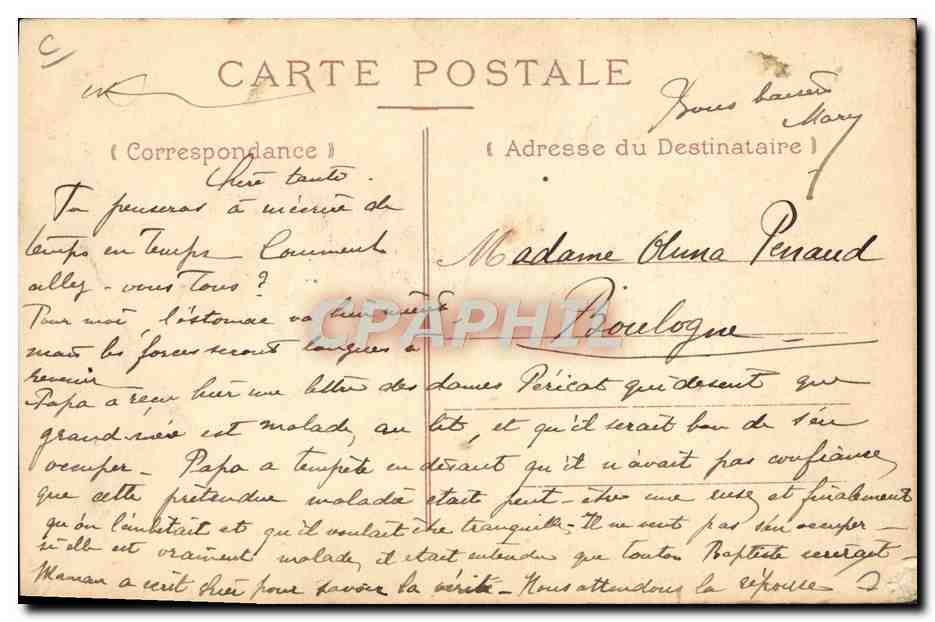 CARTE POSTALE
Bons baisers
Mary
( Correspondance )
( Adresse du Destinataire )
Chère tante.
Tu penseras à m'écrire de
temps en Temps Comment
allez-vous Tous ?
Pour moi, l'estomac va bien mieux
mais les forces seront longues à
revenir
Madame Penaud
Boulogne
CPAPHIL
Papa a reçu hier une lettre des dames Péricat qui disent que
grand-mère est malade, au lit, et qu'il serait bon de s'en
occuper - Papa a tempêté en disant qu'il n'avait pas confiance,
que cette prétendue maladie était peut-être une ruse, et finalement
qu'on l'embêtait et qu'il voulait être tranquille - Il ne veut pas s'en occuper -
si elle est vraiment malade, il était entendu que tonton Baptiste
Maman a écrit hier pour savoir la vérité - Nous attendons la réponse